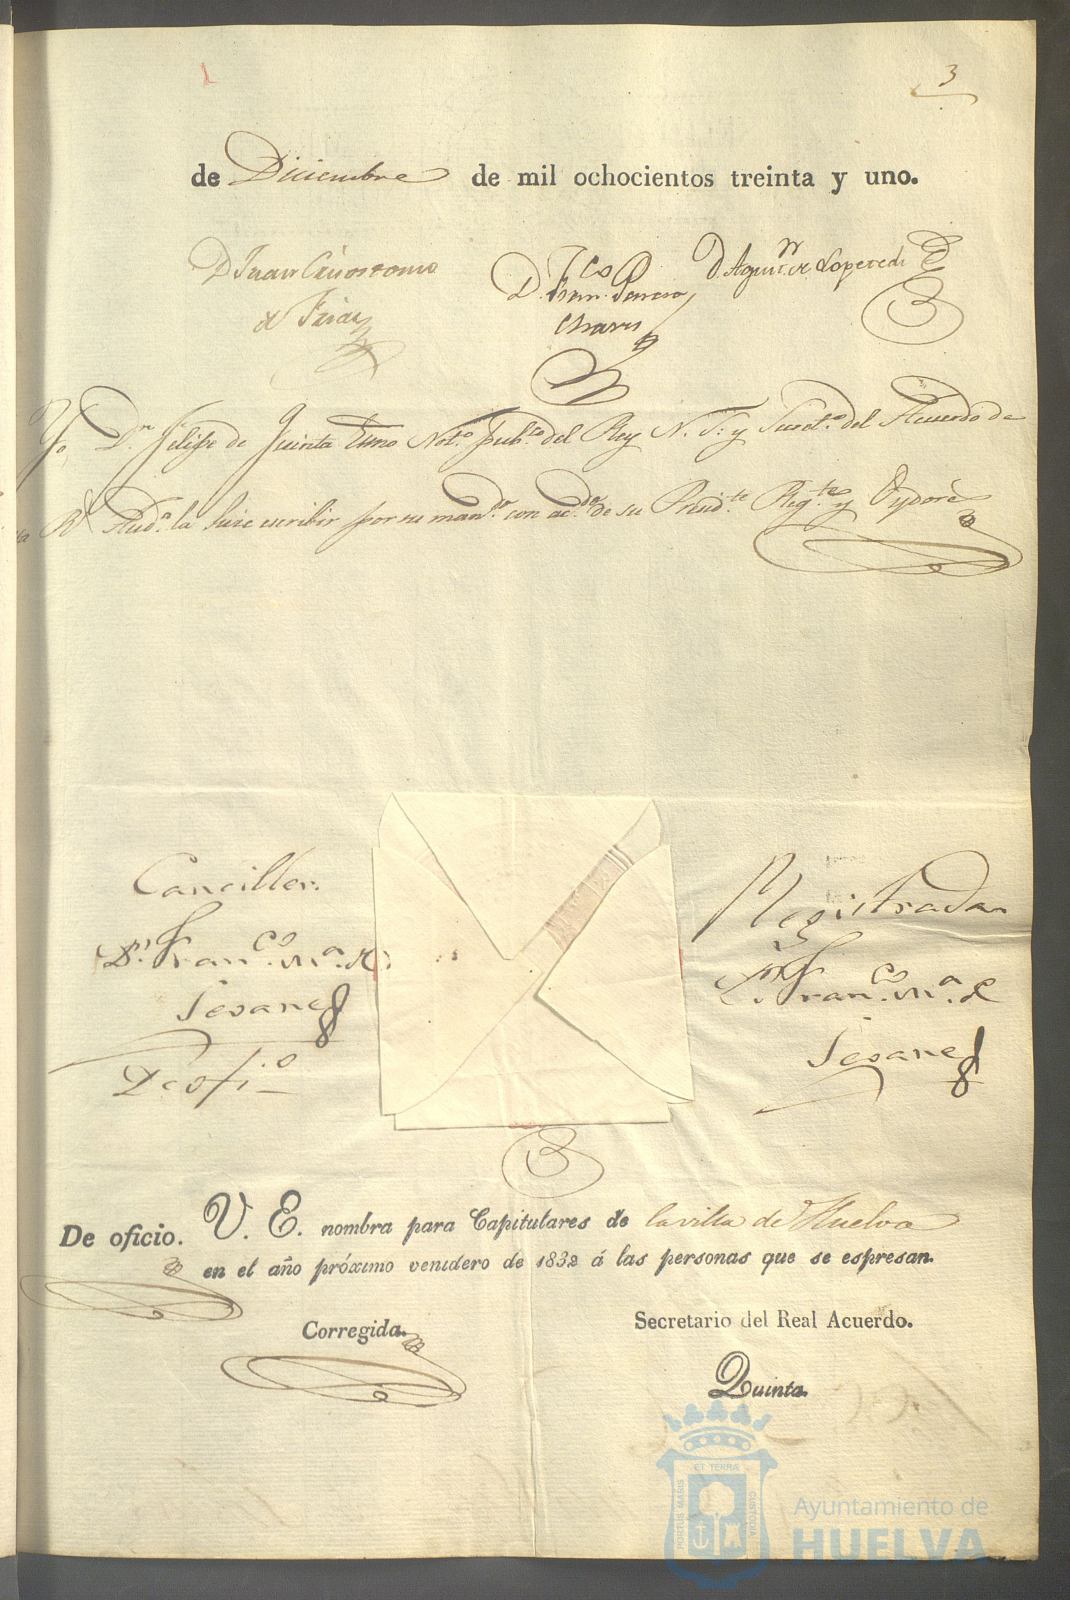 3
de Diciembre de mil ochocientos treinta y uno.
D Juan Crisostomo
D. Fran.co Pereira
D. Agus.n de Lopetedi
de Frias
Chaves
Yo D.n Felipe de Quinta Not.o pub.co del Rey N. S. y Secret.o del Acuerdo de
R.l Aud.a la hice escribir por su man.do con ac.do de su Presid.te Reg.te y Oydores
Canciller.
Registrada
D.n Fran.co M.a de
D.n Fran.co M.a de
Seoane
Seoane
De ofi.o
De oficio. V. E. nombra para Capitulares de la villa de Huelva
en el año próximo venidero de 1832 á las personas que se espresan.
Corregida.
Secretario del Real Acuerdo.
Quinta.
PORTUS MARIS ET TERRÆ CUSTODIA
Ayuntamiento de
HUELVA